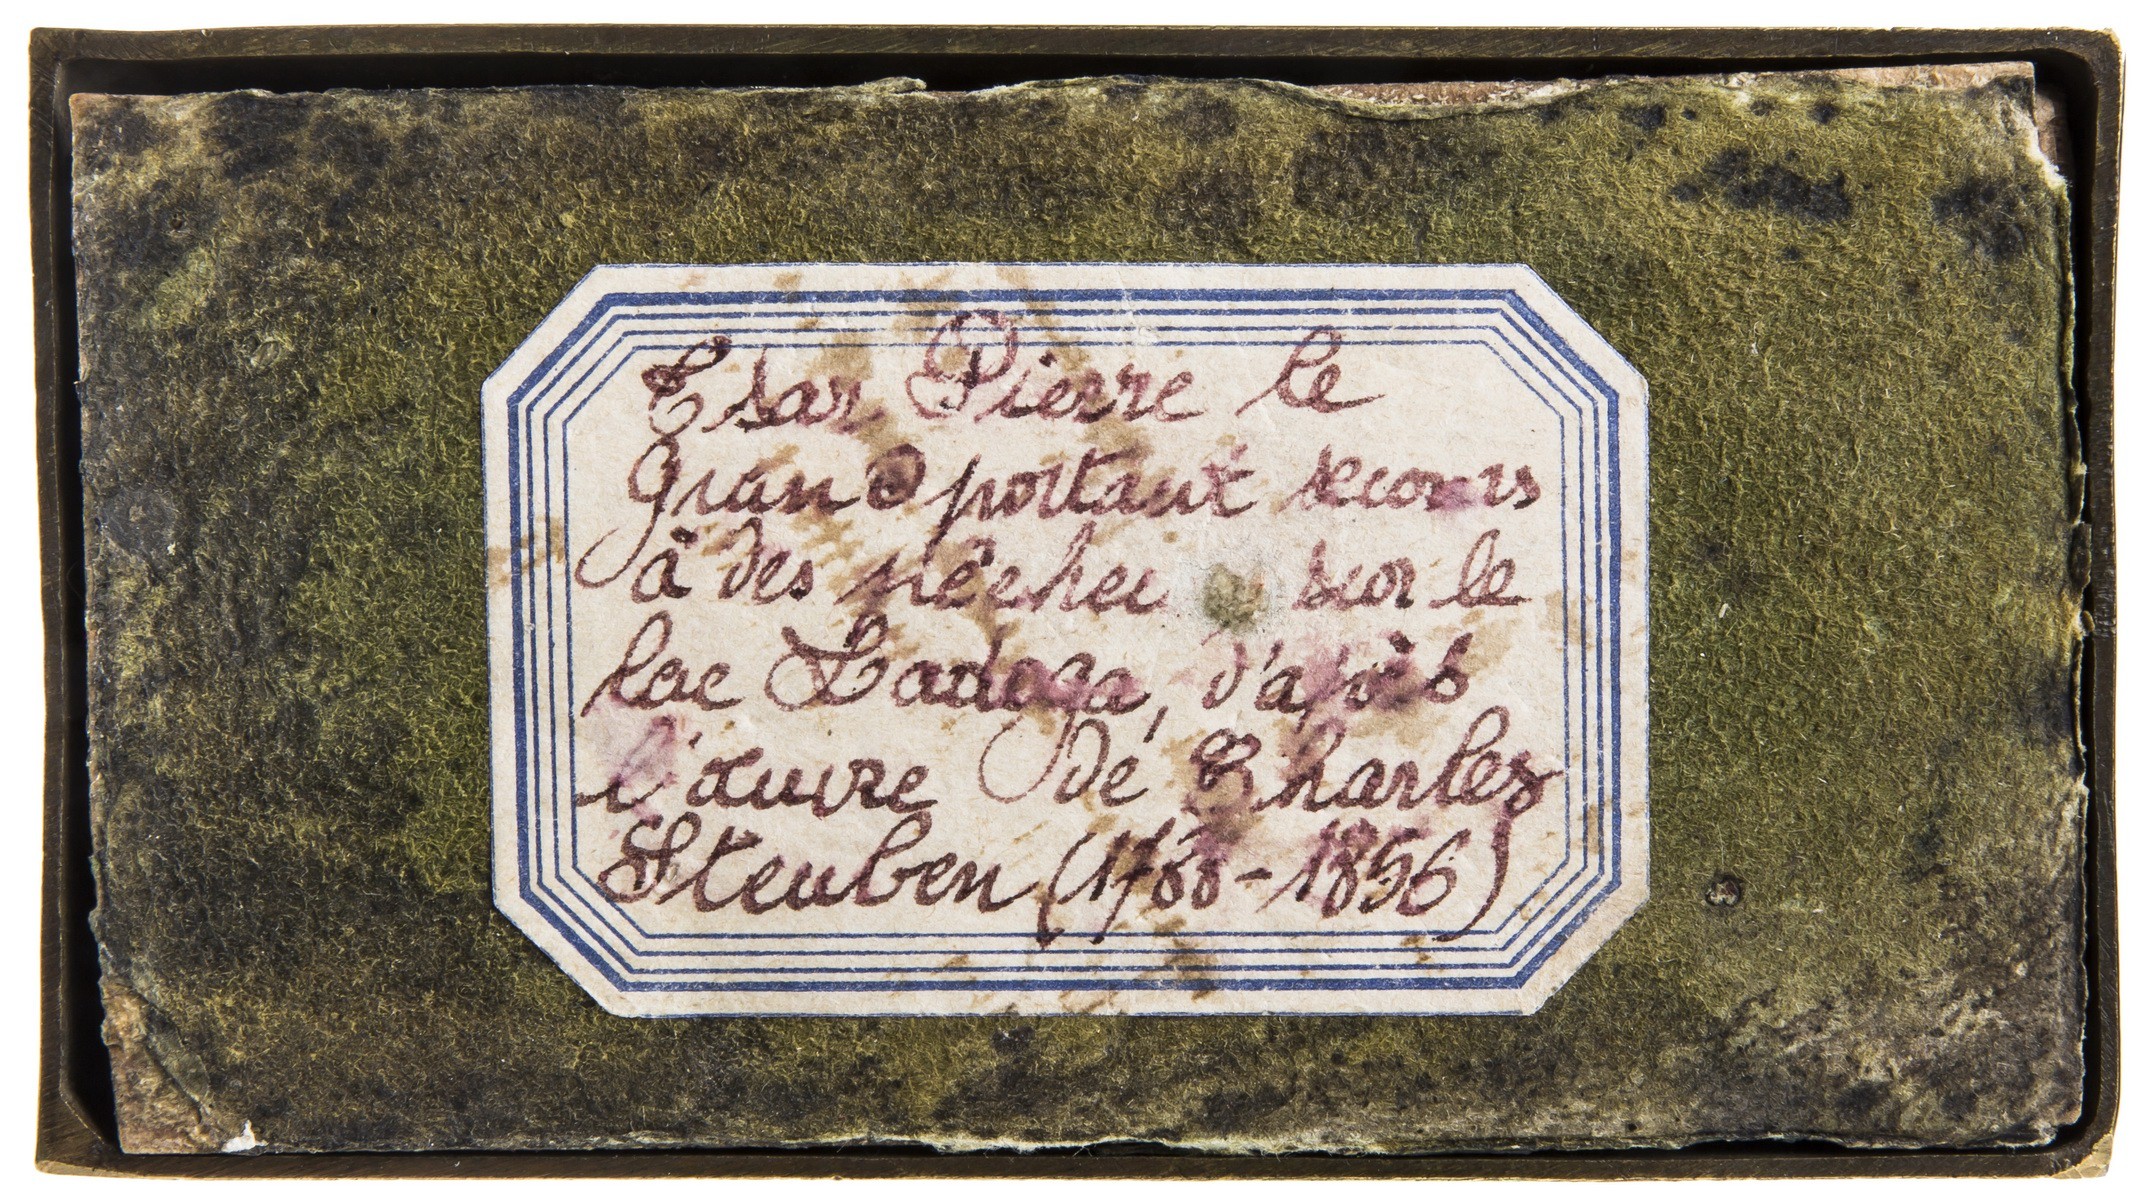 Tsar Pierre le
Grand portant secours
à des pêcheu sur le
lac Ladoga, d'après
l'œuvre de Charles
Steuben (1788-1856)